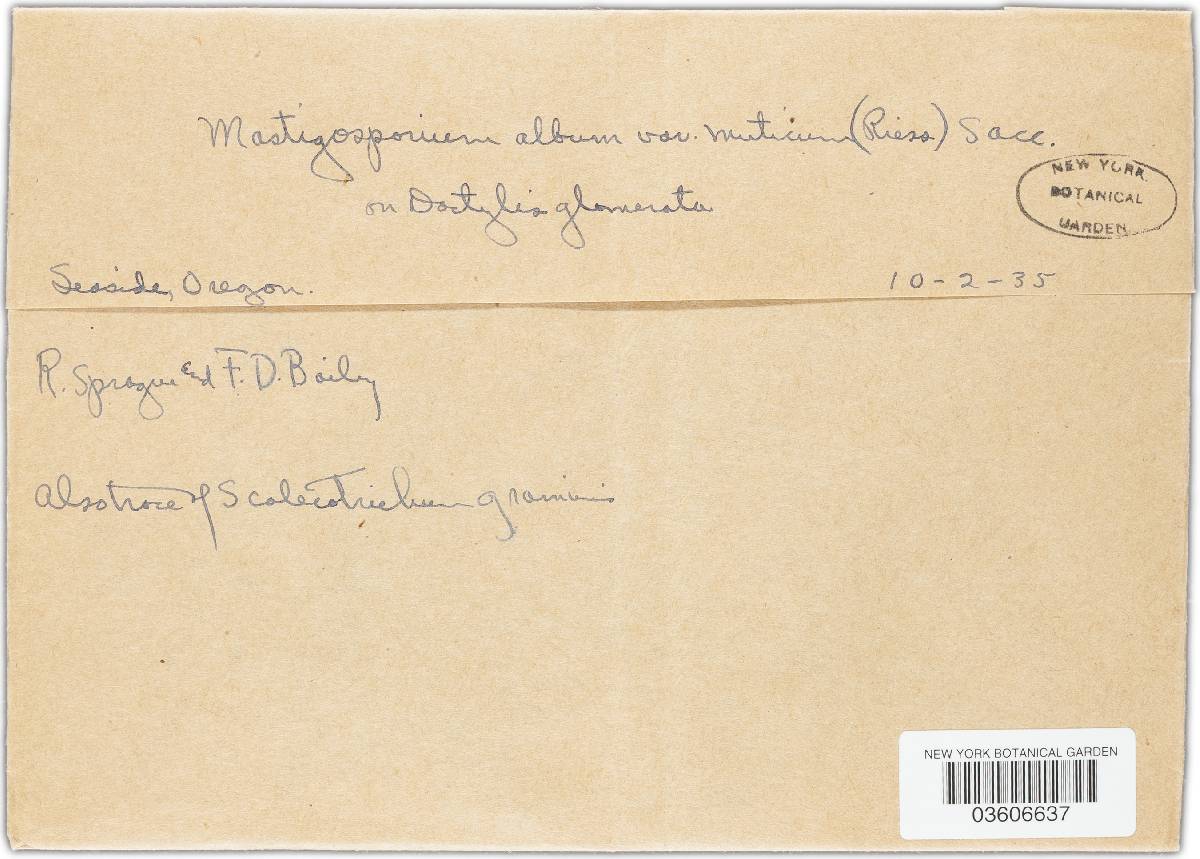 Mastigosporium album var. muticum (Riess) Sacc.
on Dactylis glomerata
NEW YORK
BOTANICAL
GARDEN
Seaside, Oregon.
10-2-35
R. Sprague and F. D. Bailey
Also trace of Scolecotrichum graminis
NEW YORK BOTANICAL GARDEN
03606637